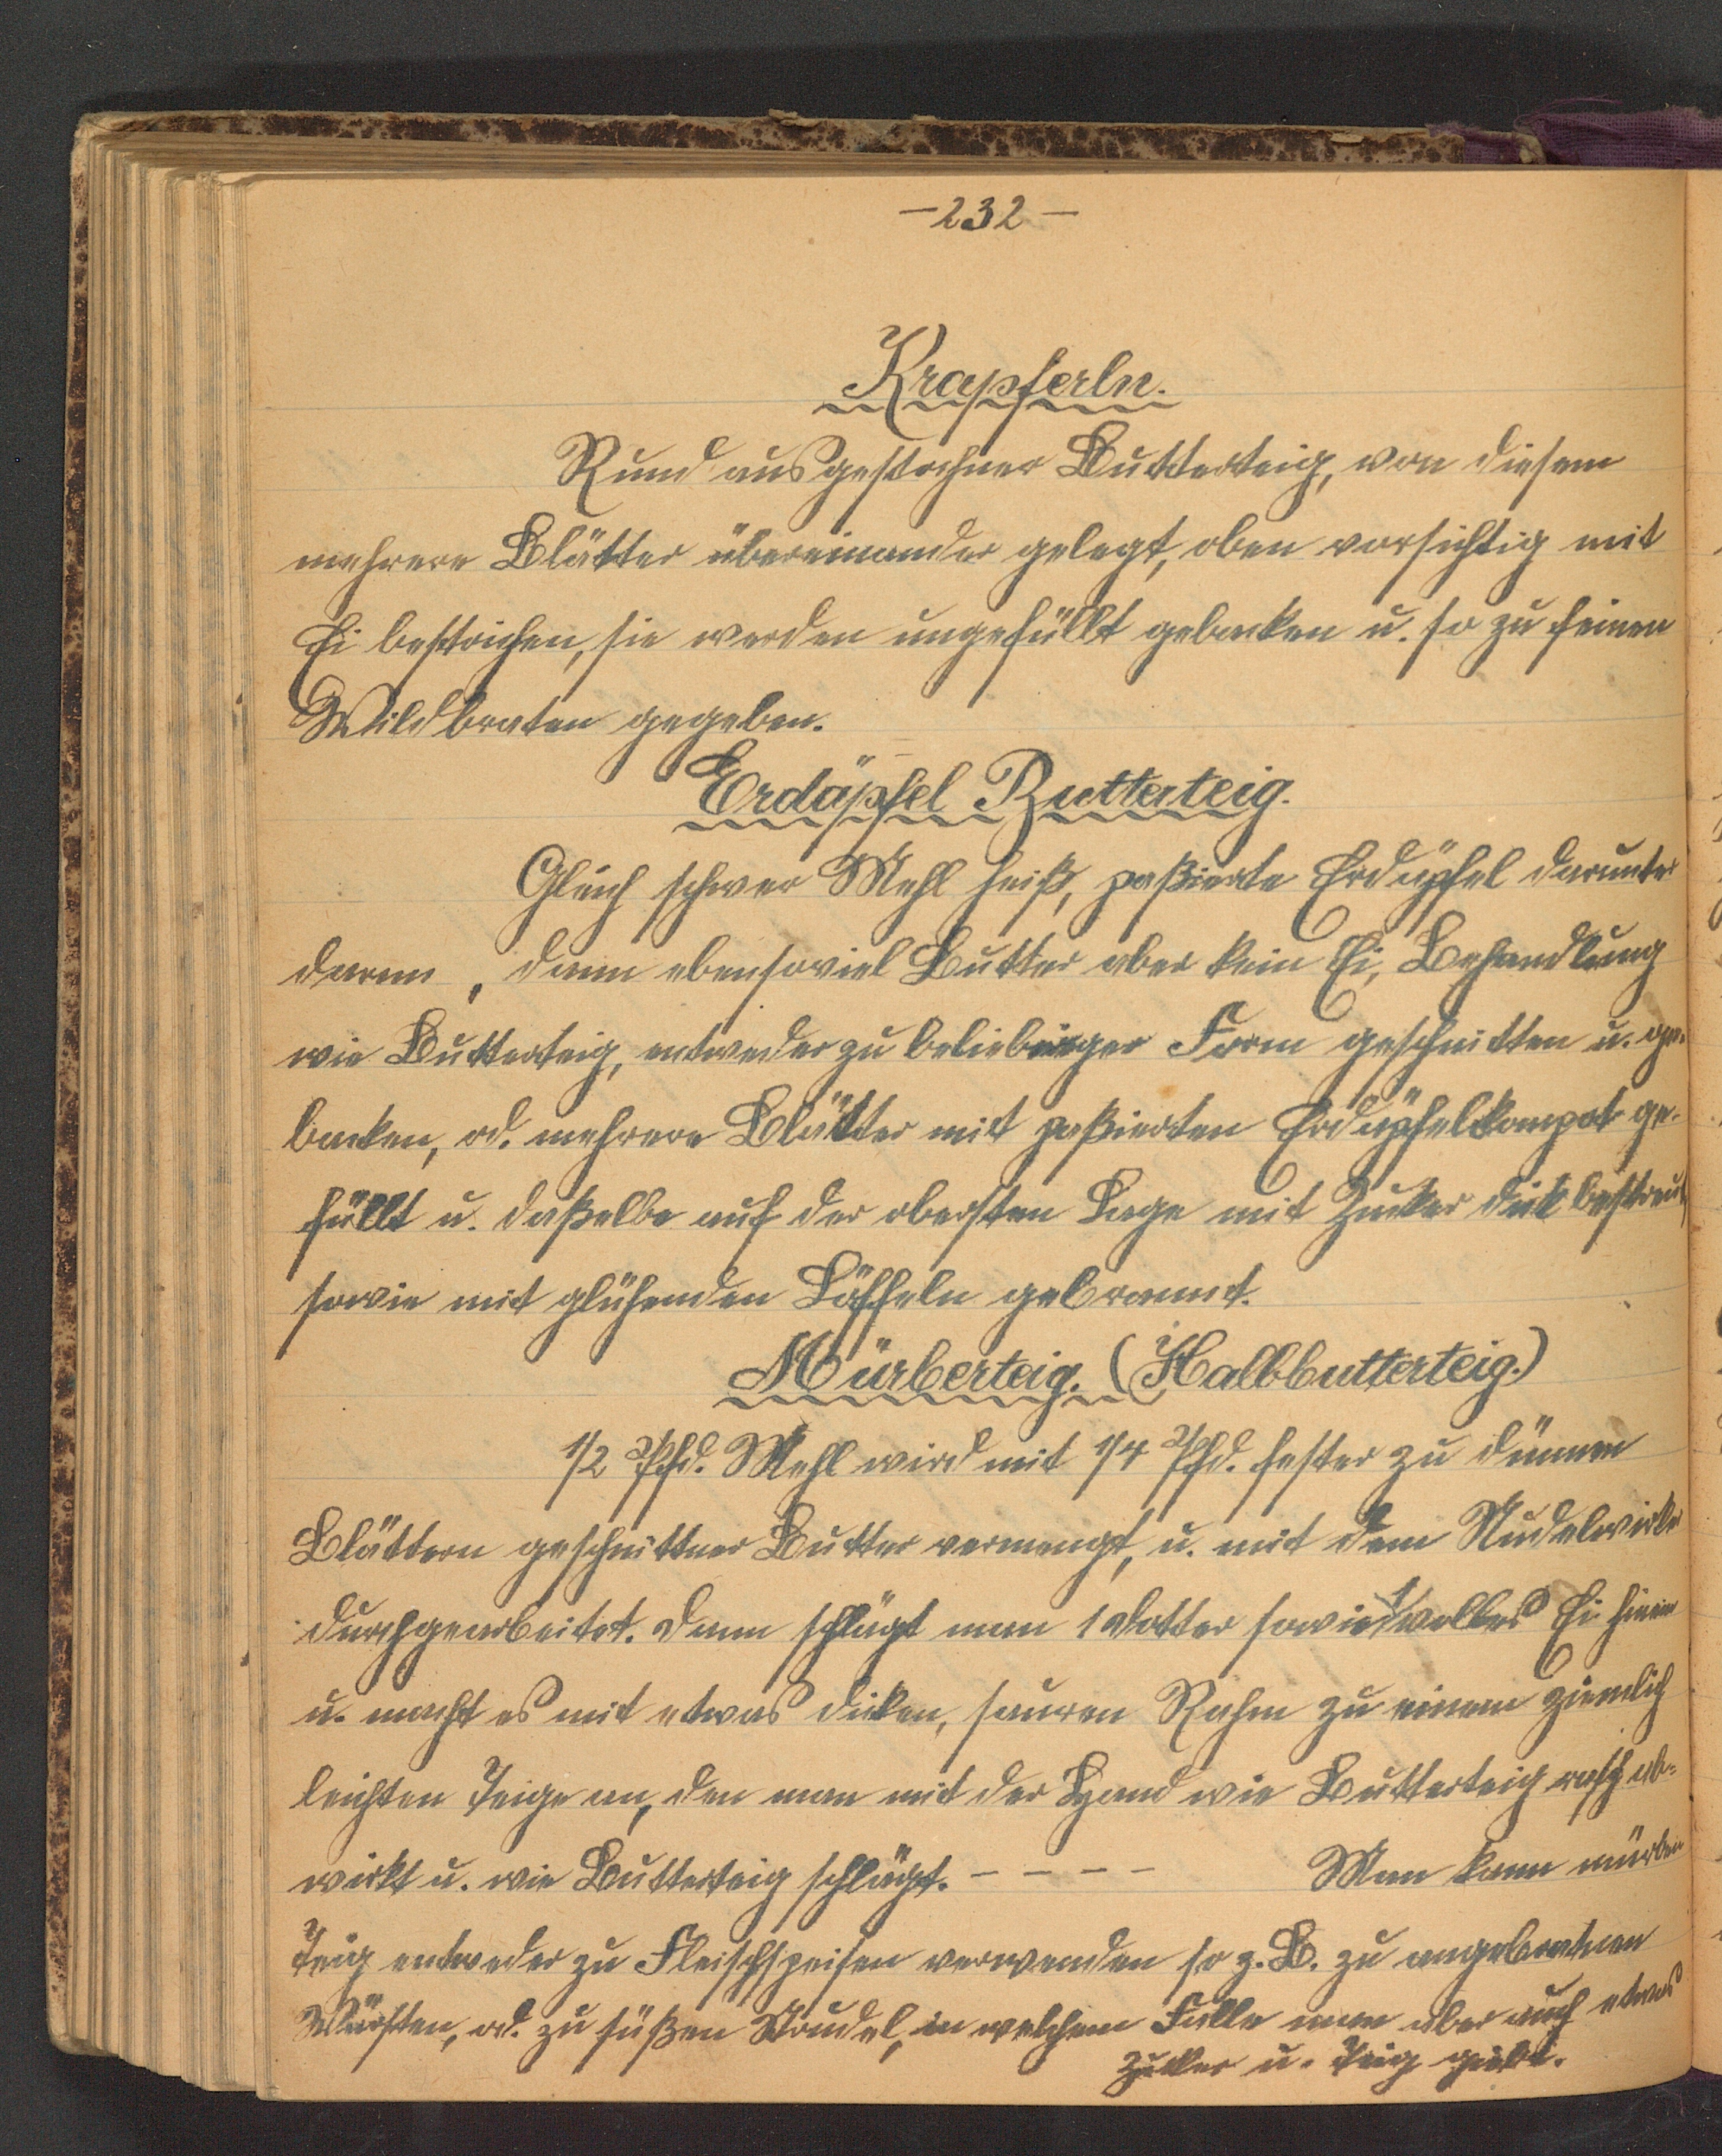 -232-
Krapferln.
Rund ausgestochner Butterteig, von diesem
mehrere Blätter übereinander gelegt, oben vorsichtig mit
Ei bestrichen, sie werden ungefüllt gebacken u. so zu feinen
Wildbraten gegeben.
Erdäpfel Butterteig.
Gleich schwer Mehl heiß, paßierte Erdäpfel darunter
daran, dann ebensoviel Butter aber kein Ei, Behandlung
wie Butterteig, entweder zu beliebiger Form geschnitten u. ge-
backen, od. mehrere Blätter mit paßierten Erdäpfelkompot ge-
füllt u. daßelbe auf der obersten Lage mit Zucker dick bestreut,
sowie mit glühenden Löffeln gebrannt.
Mürberteig. (Halbbutterteig.)
1/2 Pfd. Mehl wird mit 1/4 Pfd. fester zu dünnen
Blättern geschnittner Butter vermengt, u. mit dem Nudelwirker
durchgearbeitet. Dann schlägt man 1 Dotter sowie 1 volles Ei hinein
u. macht es mit etwas dicken, sauren Rahm zu einem ziemlich
leichten Teige an, den man mit der Hand wie Butterteig rasch ab-
wirkt u. wie Butterteig schlägt. - - - - Man kann mürben
Teig entweder zu Fleischspeisen verwenden so z. B. zu angebratnen
Würsten, od. zu süßen Strudel, in welchem Falle man aber auch etwas
Zucker u. Teig giebt.